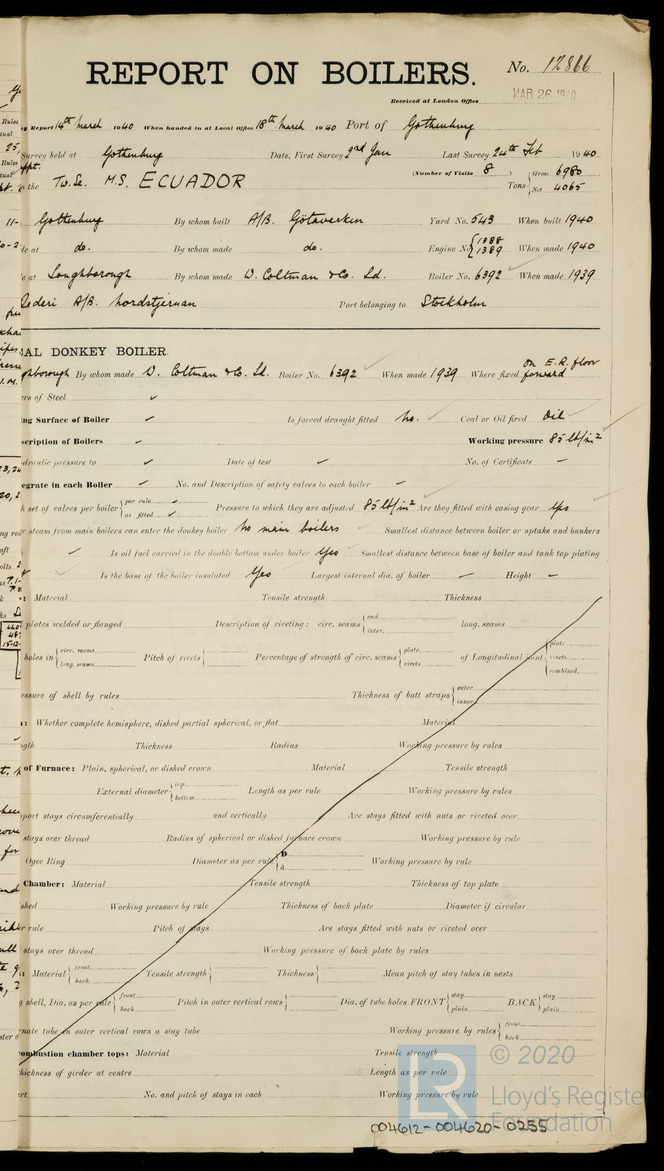 REPORT ON BOILERS.
No. 12866
Received at London Office
MAR 26 1940
Report 14th March 1940 When handed in at Local Office 18th March 1940 Port of Gothenburg
Survey held at Gothenburg Date, First Survey 2nd Jan Last Survey 24th Feb 1940
(Number of Visits 8) Tons { Gross 6980 Net 4065
the Tw. Sc. M.S. ECUADOR
Gothenburg By whom built A/B. Götaverken Yard No. 543 When built 1940
at do. By whom made do. Engine No. { 1388 1389 When made 1940
at Loughborough By whom made W. Coltman & Co. Ld. Boiler No. 6392 When made 1939
Rederi A/B. Nordstjernan Port belonging to Stockholm
AL DONKEY BOILER
ghborough By whom made W. Coltman & Co. Ld. Boiler No. 6392 When made 1939 Where fixed on E.R. floor forward
rs of Steel
ng Surface of Boiler Is forced draught fitted no. Coal or Oil fired Oil
scription of Boilers Working pressure 85 lb/in²
draulic pressure to Date of test No. of Certificate
egrate in each Boiler No. and Description of safety valves to each boiler
h set of valves per boiler { per rule as fitted Pressure to which they are adjusted 85 lb/in² Are they fitted with easing gear yes
steam from main boilers can enter the donkey boiler no main boilers Smallest distance between boiler or uptake and bunkers
Is oil fuel carried in the double bottom under boiler Yes Smallest distance between base of boiler and tank top plating
Is the base of the boiler insulated Yes Largest internal dia. of boiler Height
: Material Tensile strength Thickness
plates welded or flanged Description of riveting: circ. seams { end inter. long. seams
holes in { circ. seams long. seams Pitch of rivets { Percentage of strength of circ. seams { plate rivets of Longitudinal joint { plate rivets combined.
essure of shell by rules Thickness of butt straps { outer inner
: Whether complete hemisphere, dished partial spherical, or flat Material
gth Thickness Radius Working pressure by rules
of Furnace: Plain, spherical, or dished crown Material Tensile strength
External diameter { top bottom Length as per rule Working pressure by rules
port stays circumferentially and vertically Are stays fitted with nuts or riveted over
stays over thread Radius of spherical or dished furnace crown Working pressure by rule
Ogee Ring Diameter as per rule { D d Working pressure by rule
Chamber: Material Tensile strength Thickness of top plate
shed Working pressure by rule Thickness of back plate Diameter if circular
r rule Pitch of stays Are stays fitted with nuts or riveted over
stays over thread Working pressure of back plate by rules
: Material { front back Tensile strength { Thickness { Mean pitch of stay tubes in nests
g shell, Dia. as per rule { front back Pitch in outer vertical rows { Dia. of tube holes FRONT { stay plain BACK { stay plain
nate tube in outer vertical rows a stay tube Working pressure by rules { front back
ombustion chamber tops: Material Tensile strength
hickness of girder at centre Length as per rule
rt No. and pitch of stays in each Working pressure by rule
LR
© 2020
Lloyd's Register
Foundation
004612-004620-0255